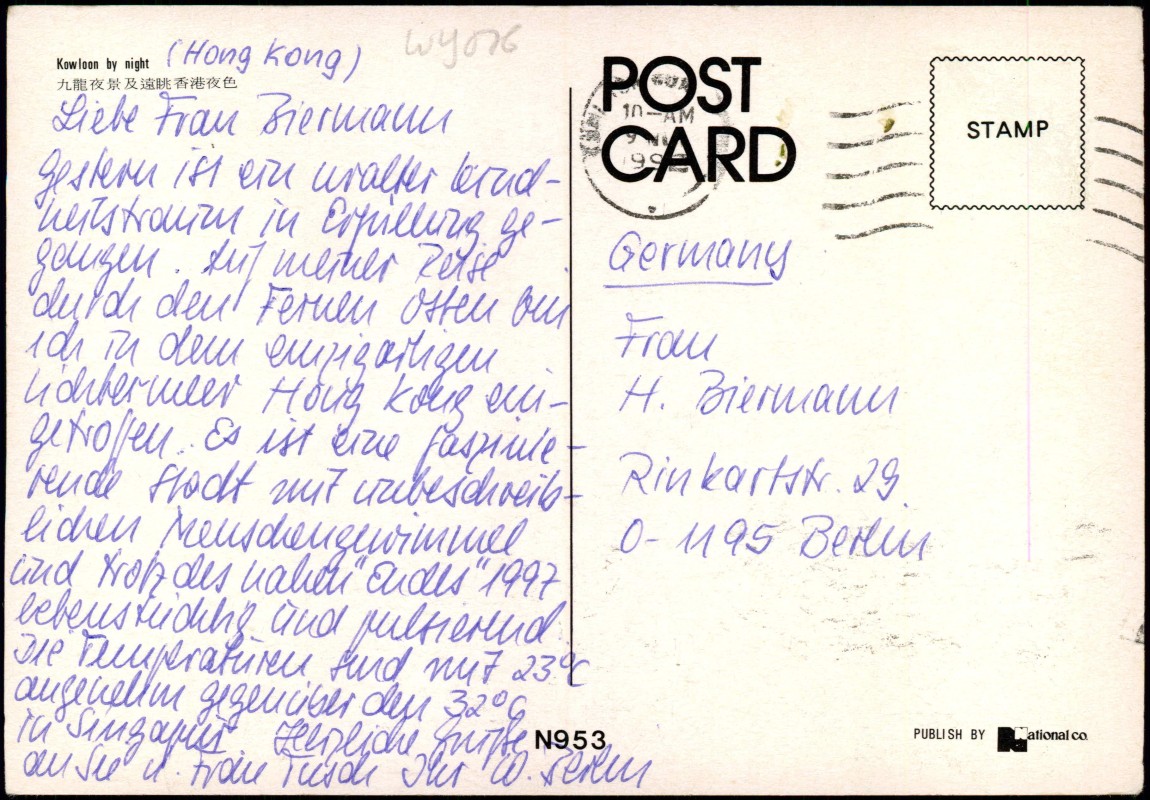 Kowloon by night (Hong Kong)
九龍夜景及遠眺香港夜色
Liebe Frau Biermann
Gestern ist ein uralter Kind-
heitstraum in Erfüllung ge-
gangen. Auf meiner Reise
durch den Fernen Osten bin
ich in dem einzigartigen
Lichtermeer Hong Kong ein-
getroffen. Es ist eine faszinie-
rende Stadt mit unbeschreib-
lichen Menschengewimmel
und trotz des nahen "Endes" 1997
lebenstüchtig und pulsierend.
Die Temperaturen sind mit 23°C
angenehm gegenüber den 32°C
in Singapur. Herzliche Grüße
an Sie u. Frau Ihr W.
N953
WY076
POST
CARD
10-AM
STAMP
Germany
Frau
H. Biermann
Rinkartstr. 29
O-1195 Berlin
PUBLISH BY National co.